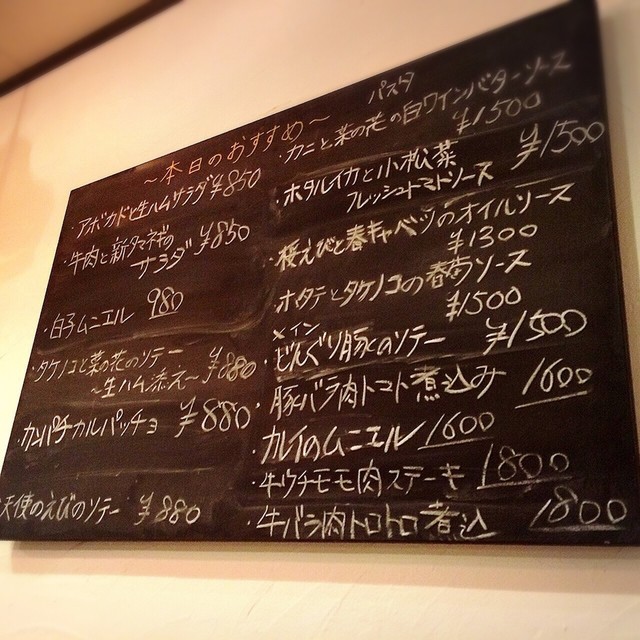 ～本日のおすすめ～
・アボカドと生ハムサラダ ¥850
・牛肉と新タマネギの
サラダ ¥850
・白子ムニエル 980
・タケノコと菜の花のソテー
～生ハム添え～ ¥880
・カンパチカルパッチョ ¥880
天使のえびのソテー ¥880
パスタ
・カニと菜の花の白ワインバターソース
¥1500
・ホタルイカと小松菜
フレッシュトマトソース ¥1500
・桜えびと春キャベツのオイルソース
¥1300
・ホタテとタケノコの春菊ソース
¥1500
メイン
・どんぐり豚のソテー ¥1500
・豚バラ肉トマト煮込み 1600
カレイのムニエル 1600
・牛ウチモモ肉ステーキ 1800
・牛バラ肉トロトロ煮込 1800